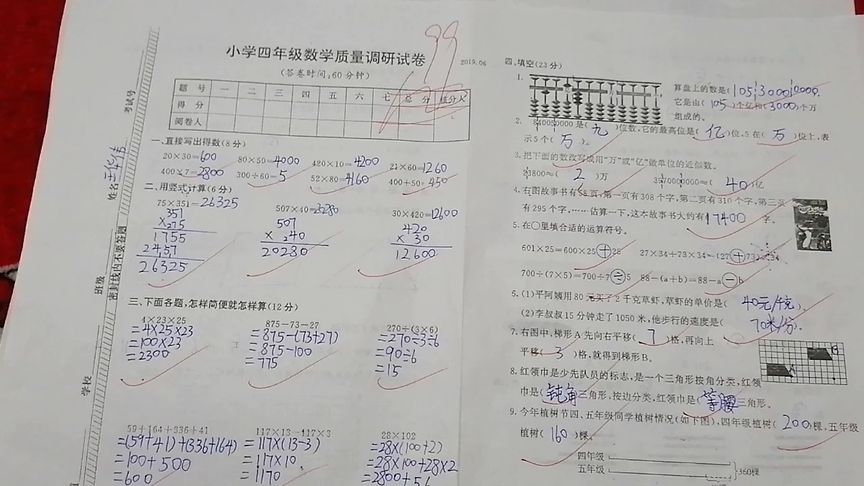 99
小学四年级数学质量调研试卷
2019.06
(答卷时间:60分钟)
题 号 一 二 三 四 五 六 七 总 分 核分人
得 分
阅卷人
一、直接写出得数(8分)
20×30=600 80×50=4000 420×10=4200 21×60=1260
400×7=2800 300÷60=5 52×80=4160 400+50=450
二、用竖式计算(6分)
75×351=26325 507×40=20280 30×420=12600
351
×75
1755
2457
26325
507
× 40
20280
420
× 30
12600
三、下面各题,怎样简便就怎样算(12分)
4×23×25 875-73-27 270÷(3×6)
=4×25×23 =875-(73+27) =270÷3÷6
=100×23 =875-100 =90÷6
=2300 =775 =15
59+164+336+41 117×13-117×3 28×102
=(59+41)+(336+164) =117×(13-3) =28×(100+2)
=100+500 =117×10 =28×100+28×2
=600 =1170 =2800+56
考试号
姓名
班级
学校
密封线内不要答题
四、填空(23分)
1.
算盘上的数是(10530000000),
它是由(105)个亿和(3000)个万
组成的。
2. 是(九)位数,它的最高位是(亿)位,5在(万)位上,表
示5个(万)。
3.把下面的数改写成用“万”或“亿”做单位的近似数。
≈(2)万 ≈(40)亿
4.右图故事书有58页,第一页有308个字,第二页有310个字,第三页
有295个字,……估算一下,这本故事书大约有(17400)字。
5.在○里填合适的运算符号。
601×25=600×25+25 27×34+73×34=(27+73)×34
700÷(7×5)=700÷7÷5 88-(a+b)=88-a-b
6.(1)平阿姨用80元买了2千克草虾,草虾的单价是(40元/千克)。
(2)李叔叔15分钟走了1050米,他步行的速度是(70米/分)。
7.右图中,梯形A先向右平移(7)格,再向上
平移(3)格,就得到梯形B。
B
A
8.红领巾是少先队员的标志,是一个三角形按角分类,红领
巾是(钝角)三角形,按边分类,红领巾是(等腰)三角形。
9.今年植树节四、五年级同学植树情况(如下图),四年级植树(200)棵,五年级
植树(160)棵。
四年级
五年级
360棵